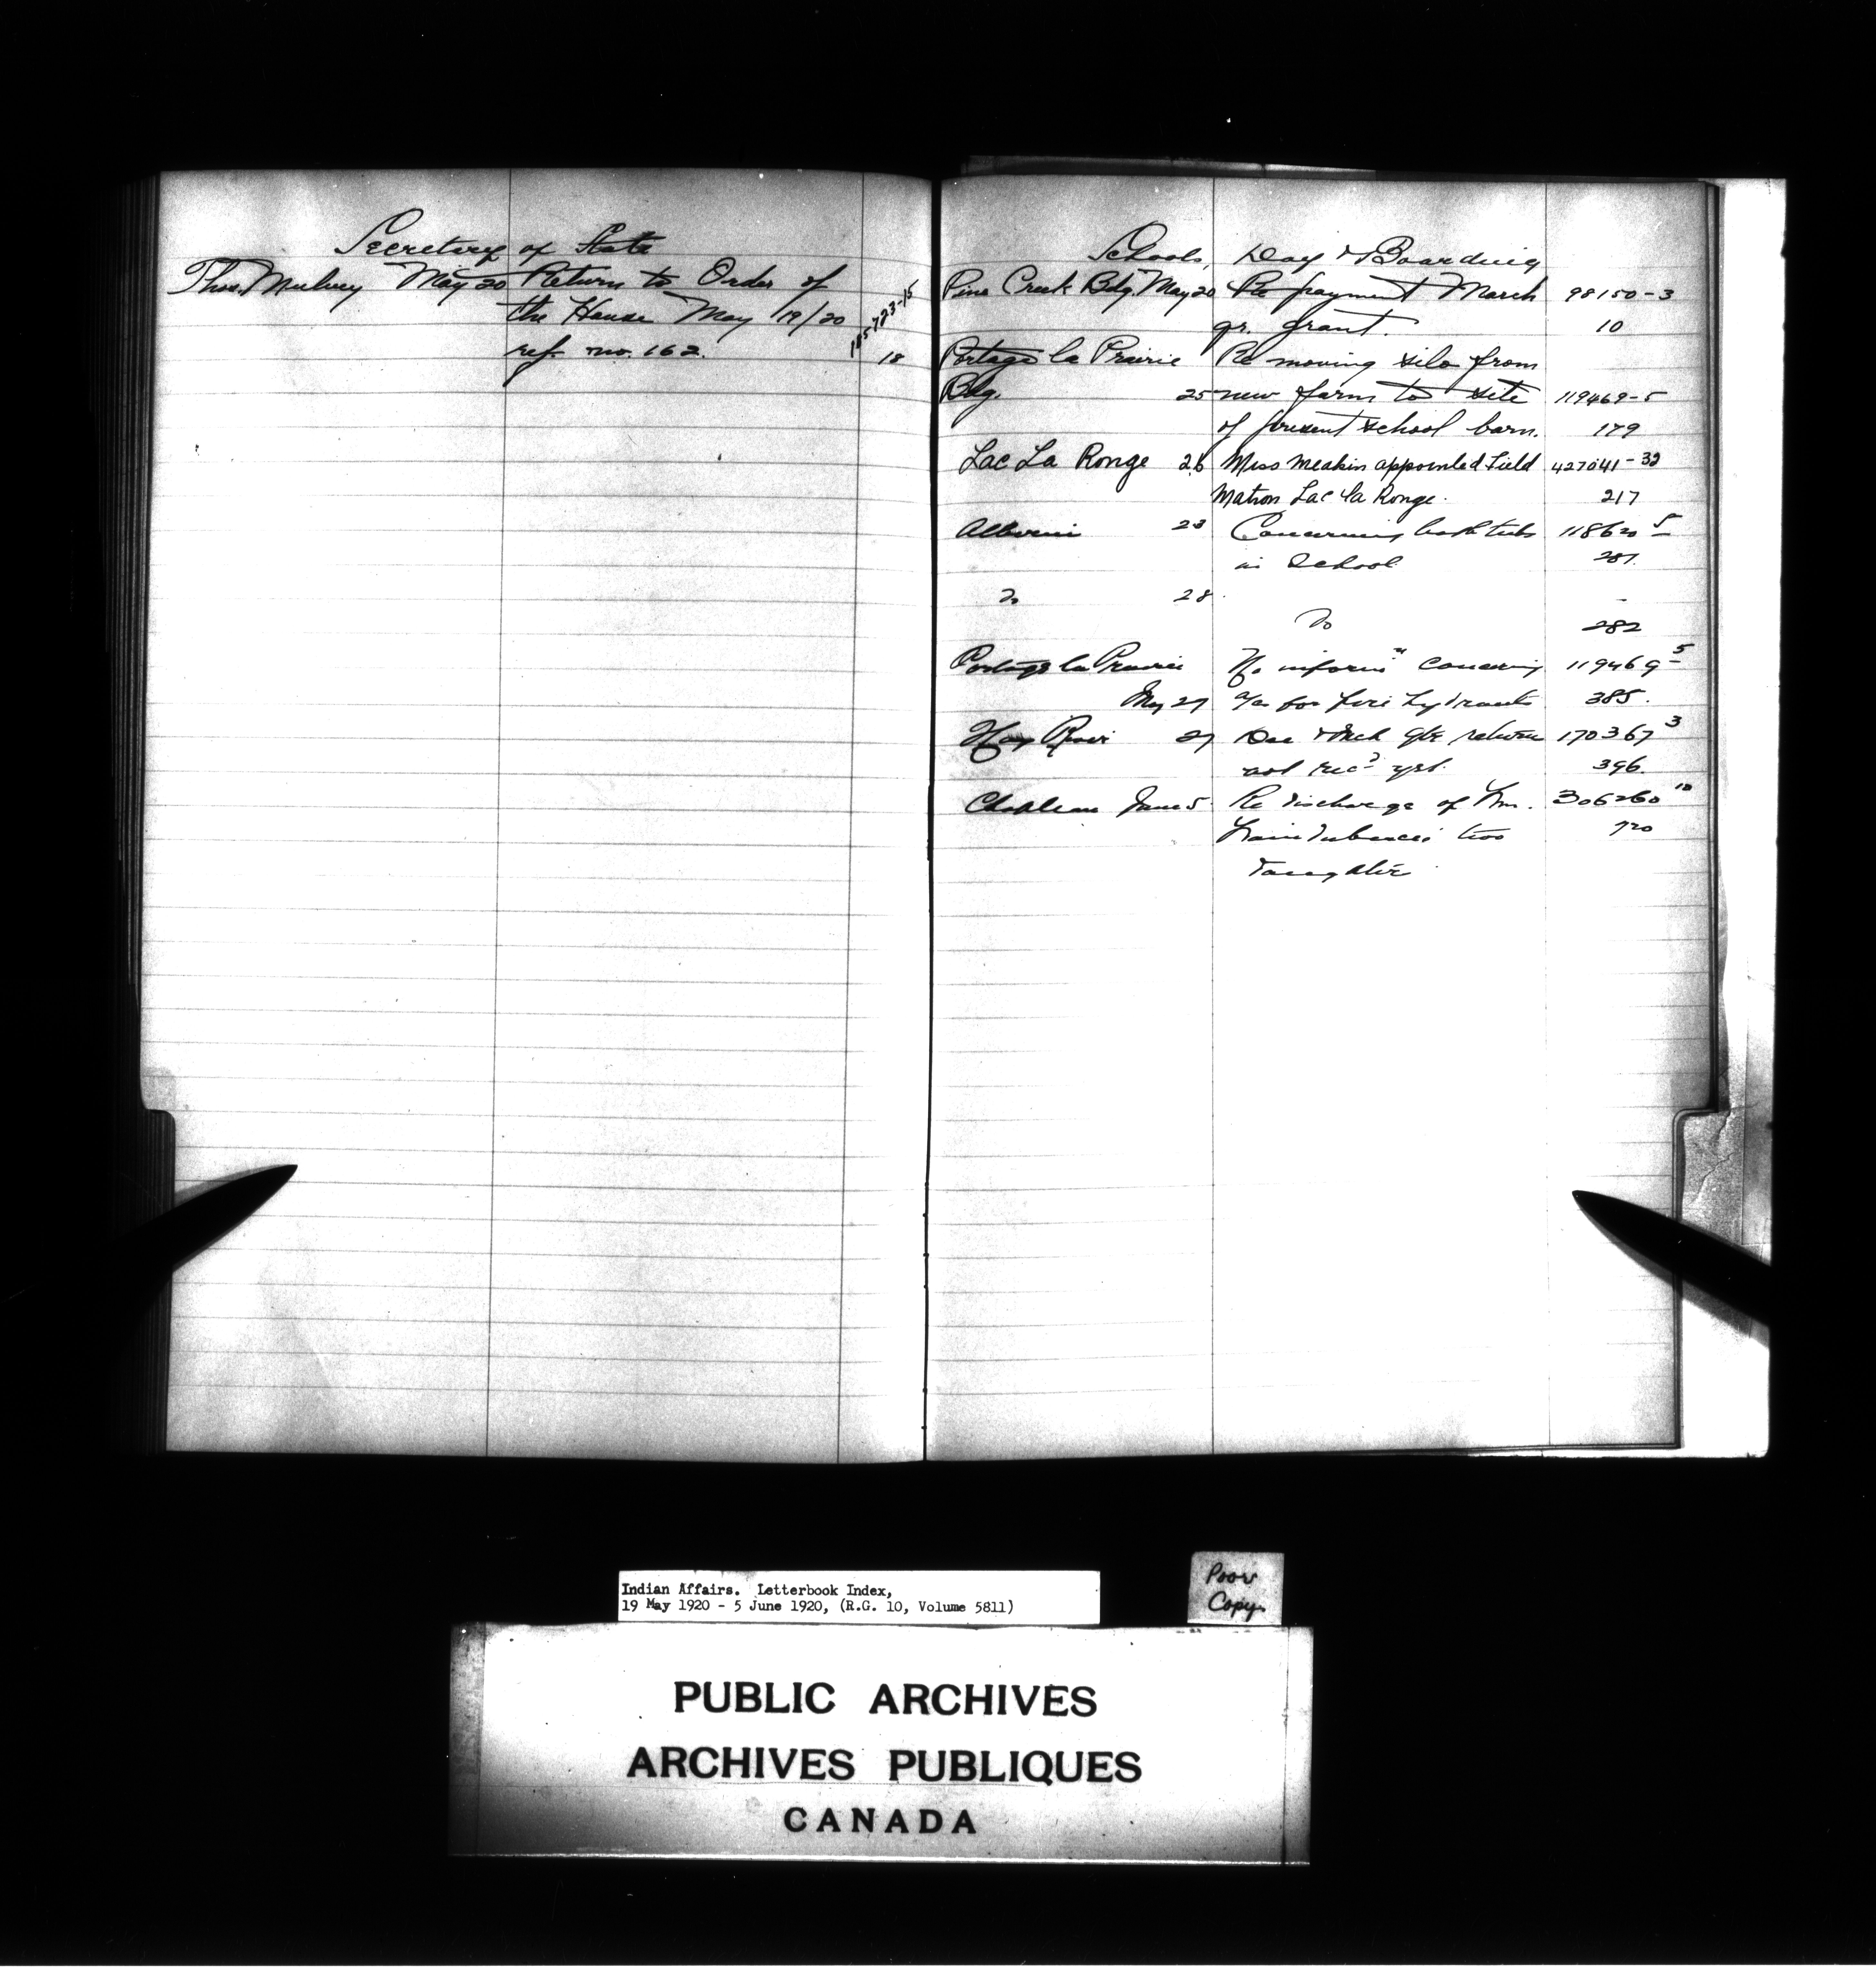 Secretary of State
Thos. Mulvey May 20 Return to Order of
the House May 19/20
ref. no. 162. 18
Schools, Day & Boarding
Pine Creek Bdg. May 20 Re payment March 98150-3
qr. grant. 10
Portage la Prairie Re moving silo from
Bdg. 25 new farm to site 119469-5
of present school barn. 179
Lac La Ronge 26 Miss Meakin appointed Field 427041-32
Matron Lac la Ronge. 217
Alberni 28 Concerning bath tubs 118620 5
in School 281.
Do 28
Do 282
Portage la Prairie No inform'n concerning 119469 5
May 27 a/c for fire hydrants 385.
Hay River 27 Dec & Mch qtr returns 170367 3
not rec'd yet. 396.
Chapleau June 5 Re discharge of Wm. 306260 10
two 720
daughters
Indian Affairs. Letterbook Index,
19 May 1920 - 5 June 1920, (R.G. 10, Volume 5811)
Poor
Copy
PUBLIC ARCHIVES
ARCHIVES PUBLIQUES
CANADA